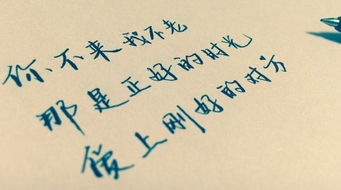 你不来我不老
那是正好的时光
上刚好的对方